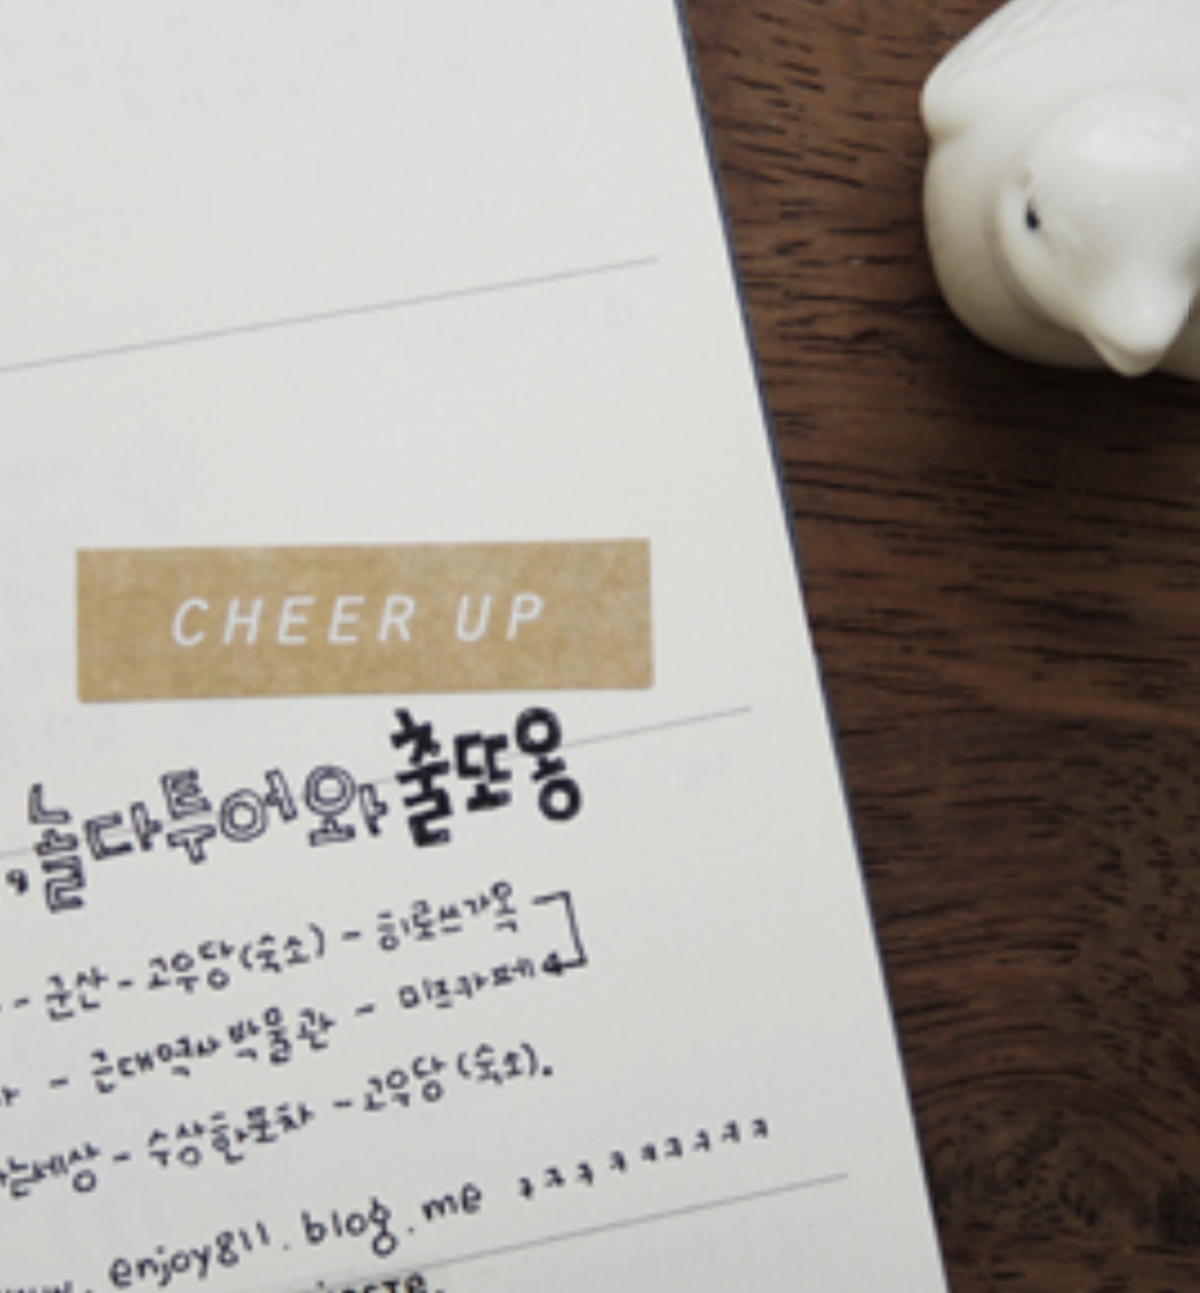 CHEER UP
늘다투어와 출또옹
- 군산 - 고우당(숙소) - 히로쓰가옥
- 근대역사박물관 - 미즈카페
세상 - 수상한포차 - 고우당 (숙소).
www. enjoy811.blog.me ㅋㅋㅋㅋㅋㅋㅋㅋㅋ